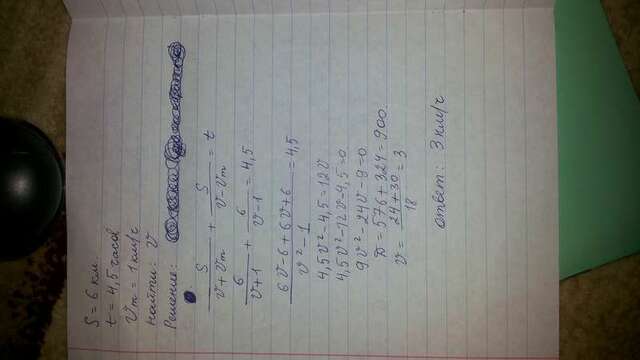 S = 6 км.
t = 4,5 часов
Vт = 1 км/ч
Найти: V
Решение:
S/(V+Vт) + S/(V-Vт) = t
6/(V+1) + 6/(V-1) = 4,5
(6V-6+6V+6)/(V²-1) = 4,5
4,5V²-4,5=12V
4,5V²-12V-4,5=0
9V²-24V-9=0
D=576+324=900
V = (24+30)/18 = 3
ответ: 3 км/ч